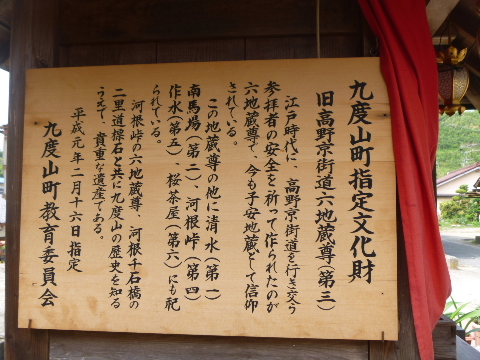 九度山町指定文化財
旧高野京街道六地蔵尊(第三)
江戸時代に、高野京街道を行き交う
参拝者の安全を祈って作られたのが
六地蔵尊で、今も子安地蔵として信仰
されている。
この地蔵尊の他に清水(第一)
南馬場(第二)、河根峠(第四)
作水(第五)、桜茶屋(第六)にも祀
られている。
河根峠の六地蔵尊、河根千石橋の
二里道標石と共に九度山の歴史を知る
うえで、貴重な遺産である。
平成元年二月十六日指定
九度山町教育委員会